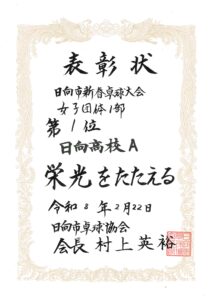 表彰状
日向市新春卓球大会
女子団体1部
第1位
日向高校A
栄光をたたえる
令和8年2月22日
日向市卓球協会
会長 村上英裕